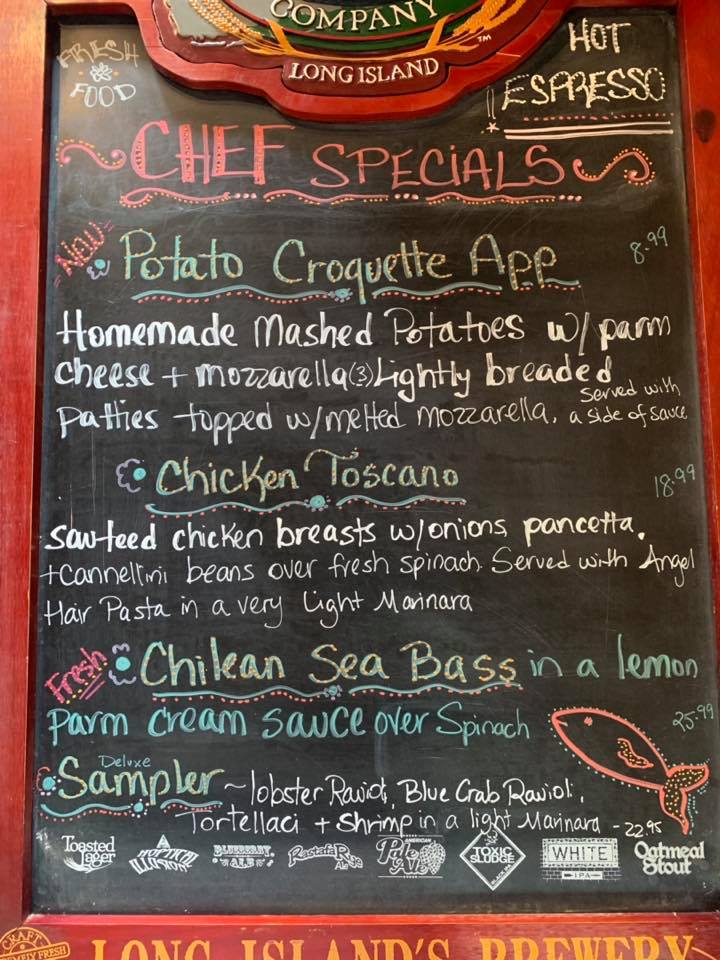 COMPANY
TM
LONG ISLAND
FRESH
FOOD
HOT
ESPRESSO
CHEF SPECIALS
New
Potato Croquette App 8.99
Homemade Mashed Potatoes w/ parm
cheese + mozzarella (3) Lightly breaded
patties topped w/melted mozzarella. Served with
a side of sauce
Chicken Toscano 18.99
sauteed chicken breasts w/onions, pancetta,
+ cannellini beans over fresh spinach. Served with Angel
Hair Pasta in a very Light Marinara
Fresh
Chilean Sea Bass in a lemon
parm cream sauce over Spinach 25.99
Deluxe
Sampler ~ lobster Ravioli, Blue Crab Ravioli,
Tortellaci + Shrimp in a light Marinara - 22.95
Toasted
Lager
BLUEBERRY
ALE
RastafaRye
Ale
AMERICAN
Pale
Ale
TONIC
SLUDGE
BLACK IPA
WHITE
IPA
Oatmeal
Stout
CRAFT
LONG ISLAND'S BREWERY